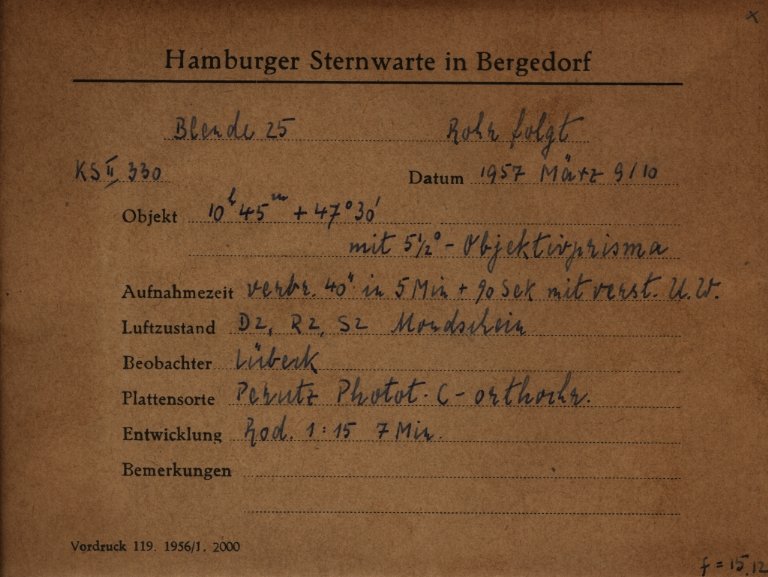 x
Hamburger Sternwarte in Bergedorf
Blende 25 Rohr folgt
KS II 330 Datum 1957 März 9/10
Objekt 10h 45m + 47° 30'
mit 5 1/2° - Objektivprisma
Aufnahmezeit verbr. 40" in 5 Min + 90 Sek mit verst. U.W.
Luftzustand D2, R2, S2 Mondschein
Beobachter Lübeck
Plattensorte Perutz Photot. C - orthochr.
Entwicklung Rod. 1:15 7 Min.
Bemerkungen
Vordruck 119. 1956/1. 2000
f = 15.12